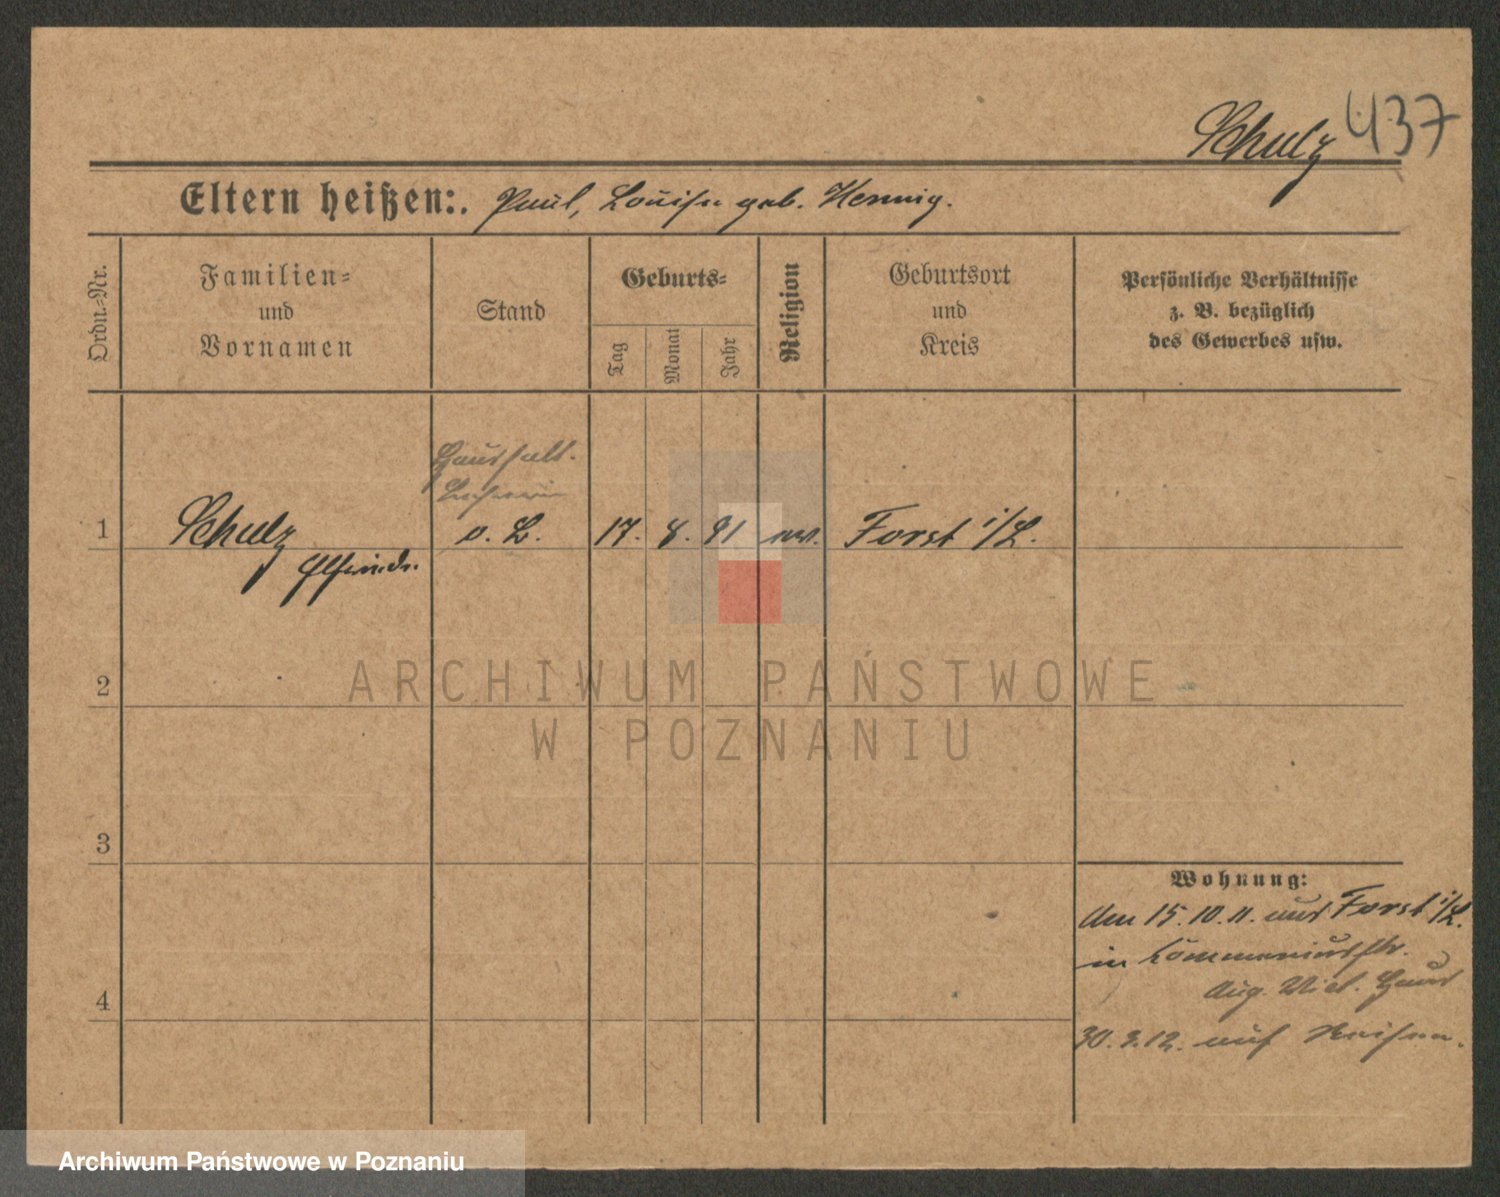 Schulz 437
Eltern heißen: Paul, Louise geb. Hennig.
Ordn.-Nr.
Familien-
und
Vornamen
Stand
Geburts-
Tag
Monat
Jahr
Religion
Geburtsort
und
Kreis
Persönliche Verhältnisse
z. B. bezüglich
des Gewerbes usw.
Haushalt.
Lehrerin
1 Schulz o. B. 17. 8. 91 ev. Forst i/L.
Elfriede.
2
3
4
Wohnung:
Am 15.10.11. aus Forst i/L.
in Commeniusstr.
Aug. Vict. Haus
30.3.12. auf Reisen.
ARCHIWUM PAŃSTWOWE
W POZNANIU
Archiwum Państwowe w Poznaniu